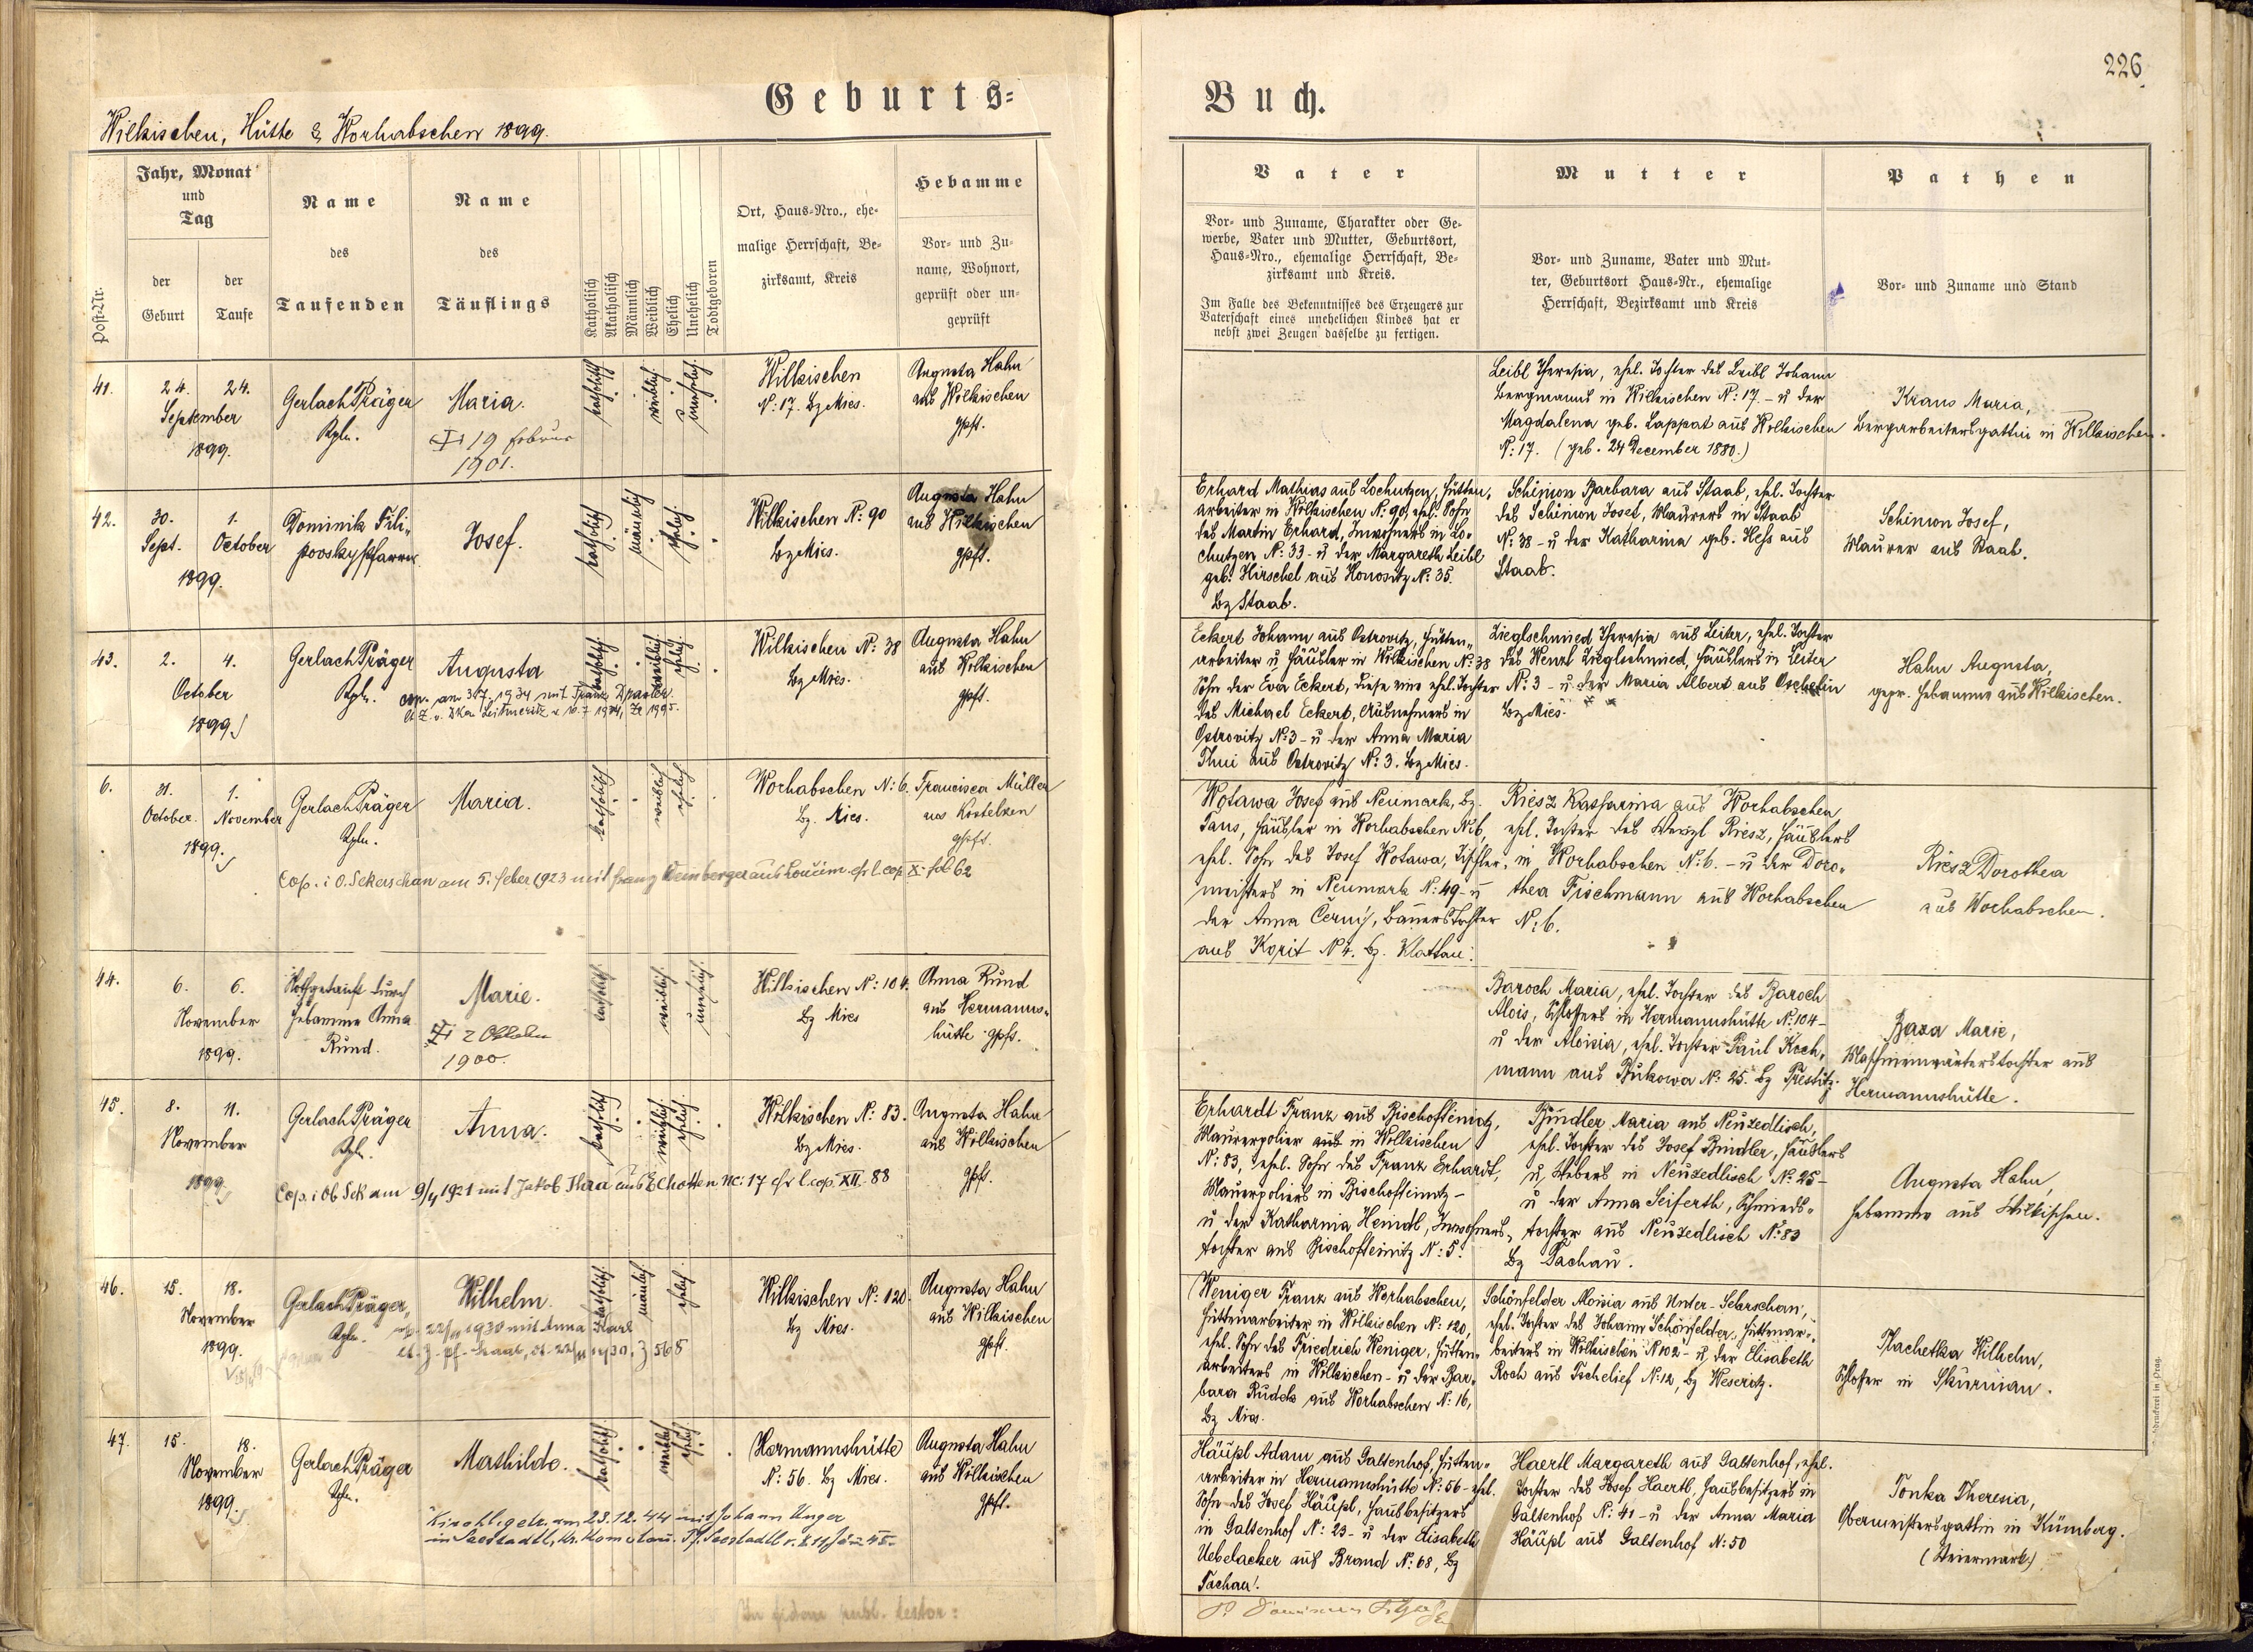 226
Geburts=
Buch.
Wilkischen, Hütte & Worhabschen 1899.
Post-Nr.
Jahr, Monat
und
Tag
der
Geburt
der
Taufe
Name
des
Taufenden
Name
des
Täuflings
Katholisch
Akatholisch
Männlich
Weiblich
Ehelich
Unehelich
Todtgeboren
Ort, Haus-Nro., ehe-
malige Herrschaft, Be-
zirksamt, Kreis
Hebamme
Vor- und Zu-
name, Wohnort,
geprüft oder un-
geprüft
Vater
Vor- und Zuname, Charakter oder Ge-
werbe, Vater und Mutter, Geburtsort,
Haus-Nro., ehemalige Herrschaft, Be-
zirksamt und Kreis.
Im Falle des Bekenntnisses des Erzeugers zur
Vaterschaft eines unehelichen Kindes hat er
nebst zwei Zeugen dasselbe zu fertigen.
Mutter
Vor- und Zuname, Vater und Mut-
ter, Geburtsort Haus-Nr., ehemalige
Herrschaft, Bezirksamt und Kreis
Pathen
Vor- und Zuname und Stand
41.
24. 24.
September
1899.
Gerlach Präger
Kpln.
Maria.
19 Februar
1901.
katholisch
weiblich
unehelich
Wilkischen
N: 17. Bz Mies.
Augusta Hahn
aus Wilkischen
gpft.
Leibl Theresia, ehel. Tochter des Leibl Johann
Bergmanns in Wilkischen N: 17 - u der
Magdalena geb. Lappat aus Wilkischen
N: 17. (geb. 24 December 1880.)
Kraus Maria,
Bergarbeitersgattin in Wilkischen.
42.
30. 1.
Sept. October
1899.
Dominik Fili-
povsky Pfarrer
Josef.
katholisch
männlich
ehelich
Wilkischen N: 90
Bz Mies.
Augusta Hahn
aus Wilkischen
gpft.
Erhard Mathias aus Lochutzen, Hütten-
arbeiter in Wilkischen N: 90, ehel. Sohn
des Martin Erhard, Inwohners in Lo-
chutzen N: 33 - u der Margareth Leibl
geb. Hirschel aus Honositz N: 35.
Bz Staab.
Schimon Barbara aus Staab, ehel. Tochter
des Schimon Josef, Maurers in Staab
N: 38 - u der Katharina geb. Heß aus
Staab.
Schimon Josef,
Maurer aus Staab.
43.
2. 4.
October
1899
Gerlach Präger
Kpln.
Augusta
cop. am 3.7.1934 mit Franz
Leitmeritz v. 10.7.1934,
katholisch
weiblich
ehelich
Wilkischen N: 38
Bz Mies.
Augusta Hahn
aus Wilkischen
gpft.
Eckert Johann aus Ostrovitz, Hütten-
arbeiter u Häusler in Wilkischen N: 38
Sohn der Eva Eckert, diese eine ehel. Tochter
des Michael Eckert, Ausnehmers in
Ostrovitz N: 3 - u der Anna Maria
Thui aus Ostrovitz N: 3. Bz Mies.
Zieglschmied Theresia aus Leiter, ehel. Tochter
des Wenzl Zieglschmied, Häuslers in Leiter
N: 3 - u der Maria Albert aus Oschelin
Bz Mies.
Hahn Augusta,
gepr. Hebamme aus Wilkischen.
6.
31. 1.
October. November
1899.
Gerlach Präger
Kpln.
Maria.
katholisch
weiblich
ehelich
Worhabschen N: 6.
Bz. Mies.
Francisca Müller
aus Kostelzen
gpft.
Cop. i O. Sekerschan am 5. Feber 1923 mit Franz Weinberger aus cfr l. cop X. fol 62
Wotawa Josef aus Neumark, Bz.
Taus, Häusler in Worhabschen N: 6,
ehel. Sohn des Josef Wotawa, Tischler-
meisters in Neumark N: 49 - u
der Anna Černý, Bauerstochter
aus Koprit N 4. Bz. Klattau.
Riesz Katharina aus Worhabschen
ehel. Tochter des Wenzl Riesz, Häuslers
in Worhabschen N: 6. - u der Doro-
thea Fischmann aus Worhabschen
N: 6.
Riesz Dorothea
aus Worhabschen.
44.
6. 6.
November
1899.
Nothgetauft durch
Hebamme Anna
Rund.
Marie.
2 October
1900.
katholisch
weiblich
unehelich
Wilkischen N: 104.
Bz Mies
Anna Rund
aus Hermanns-
hütte gpft.
Baroch Maria, ehel. Tochter des Baroch
Alois, Schlossers in Hermannshütte N: 104 -
u der Aloisia, ehel. Tochter Paul Koch-
mann aus Bukowa N: 25. Bz Přestitz.
Baxa Marie,
Maschinenwärterstochter aus
Hermannshütte.
45.
8. 11.
November
1899
Gerlach Präger
Kpln.
Anna.
katholisch
weiblich
ehelich
Wilkischen N: 83.
Bz Mies.
Augusta Hahn
aus Wilkischen
gpft.
Cop. i Ob Sek am 9/4 1921 mit Jakob aus Elhotten Nc: 17 cfr l. cop. XII. 88
Erhardt Franz aus Bischofteinitz,
Maurerpolier aus in Wilkischen
N: 83, ehel. Sohn des Franz Erhardt,
Maurerpoliers in Bischofteinitz -
u der Katharina Heindl, Inwohners-
tochter aus Bischofteinitz N: 5.
Bindler Maria aus Neuzedlisch,
ehel. Tochter des Josef Bindler, Häuslers
u Webers in Neuzedlisch N: 25 -
u der Anna Seiferth, Schmieds-
tochter aus Neuzedlisch N: 83
Bz Tachau.
Augusta Hahn,
Hebamme aus Wilkischen.
46.
15. 18.
November
1899.
Gerlach Präger,
Kpln.
Wilhelm.
22/11 1930 mit Anna
katholisch
männlich
ehelich
Wilkischen N: 120.
Bz Mies.
Augusta Hahn
aus Wilkischen
gpft.
Weniger Franz aus Worhabschen,
Hüttenarbeiter in Wilkischen N: 120,
ehel. Sohn des Friedrich Weniger, Hütten-
arbeiters in Wilkischen - u der Bar-
bara Rudek aus Worhabschen N: 16,
Bz Mies.
Schönfelder Aloisia aus Unter-Sekerschan,
ehel. Tochter des Johann Schönfelder, Hüttenar-
beiters in Wilkischen N 102 - u der Elisabeth
Roch aus Tschelief N: 12, Bz Weseritz.
Plachetka Wilhelm,
Schlosser in Skurnian.
47.
15. 18.
November
1899.
Gerlach Präger
Kpln.
Mathilde.
katholisch
weiblich
ehelich
Hermannshütte
N: 56. Bz Mies.
Augusta Hahn
aus Wilkischen
gpft.
Kirchl. getr. am 23.12.44 mit Johann Unger
in Seestadtl, Kr. Komotau. Pf. Seestadtl
Häupl Adam aus Galtenhof, Hütten-
arbeiter in Hermannshütte N: 56 - ehel.
Sohn des Josef Häupl, Hausbesitzers
in Galtenhof N: 23 - u der Elisabeth
Uebelacker aus Brand N: 68, Bz
Tachau.
Haertl Margareth aus Galtenhof, ehel.
Tochter des Josef Haertl, Hausbesitzers in
Galtenhof N: 41 - u der Anna Maria
Häupl aus Galtenhof N: 50
Tonka Theresia,
Obermeistersgattin in Künberg.
(Steiermark)
In fidem publ. testor: